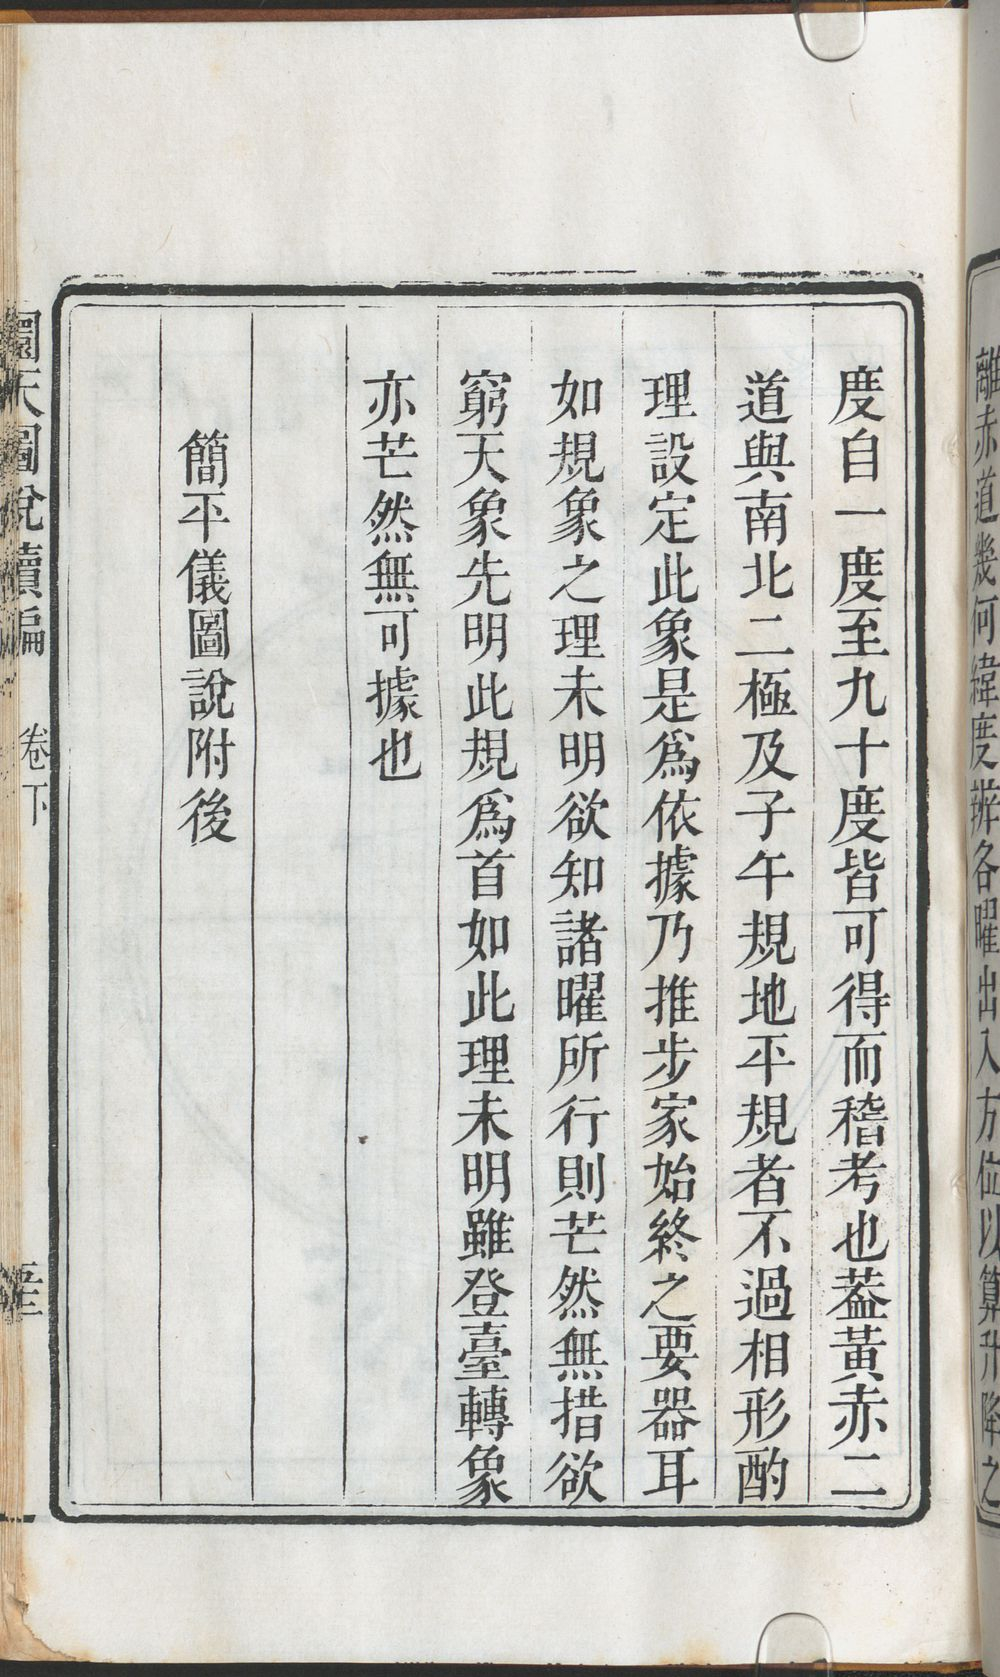 離赤道幾何緯度辨各曜出入方位以算升降之
度自一度至九十度皆可得而稽考也葢黃赤二
道與南北二極及子午規地平規者不過相形酌
理設定此象是爲依據乃推步家始終之要器耳
如規象之理未明欲知諸曜所行則芒然無措欲
窮天象先明此規爲首如此理未明雖登臺轉象
亦芒然無可據也
簡平儀圖說附後
圜天圖說續編 卷下